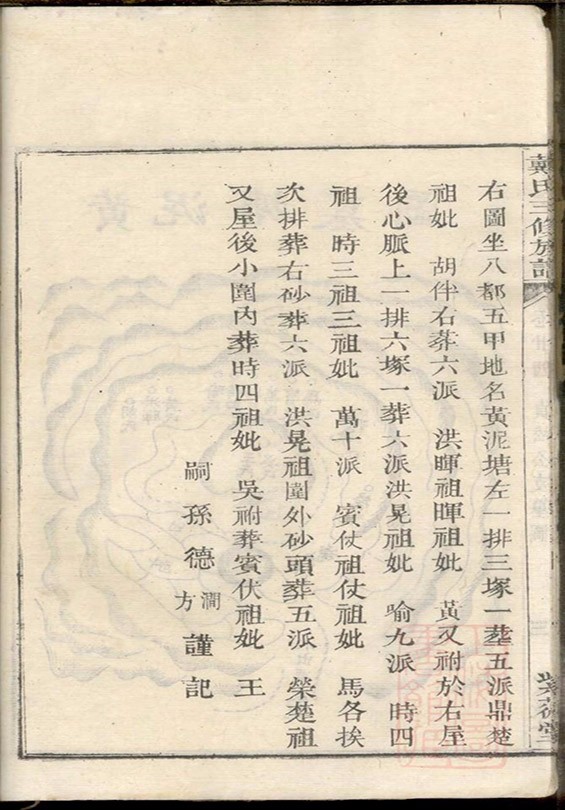 戴氏三修族譜
右圖坐八都五甲地名黃泥塘左一排三塚一塟五派鼎楚
祖妣 胡伴右葬六派 洪暉祖暉祖妣 黃又祔於右屋
後心脈上一排六塚一葬六派洪晃祖妣 喻九派 時四
祖 時三祖三祖妣 萬十派 賓仗祖仗祖妣 馬各挨
次排葬右砂葬六派 洪晃祖圍外砂頭葬五派 榮楚祖
又屋後小圍內葬時四祖妣 吳祔葬賓伏祖妣 王
嗣孫德 澗方 謹記